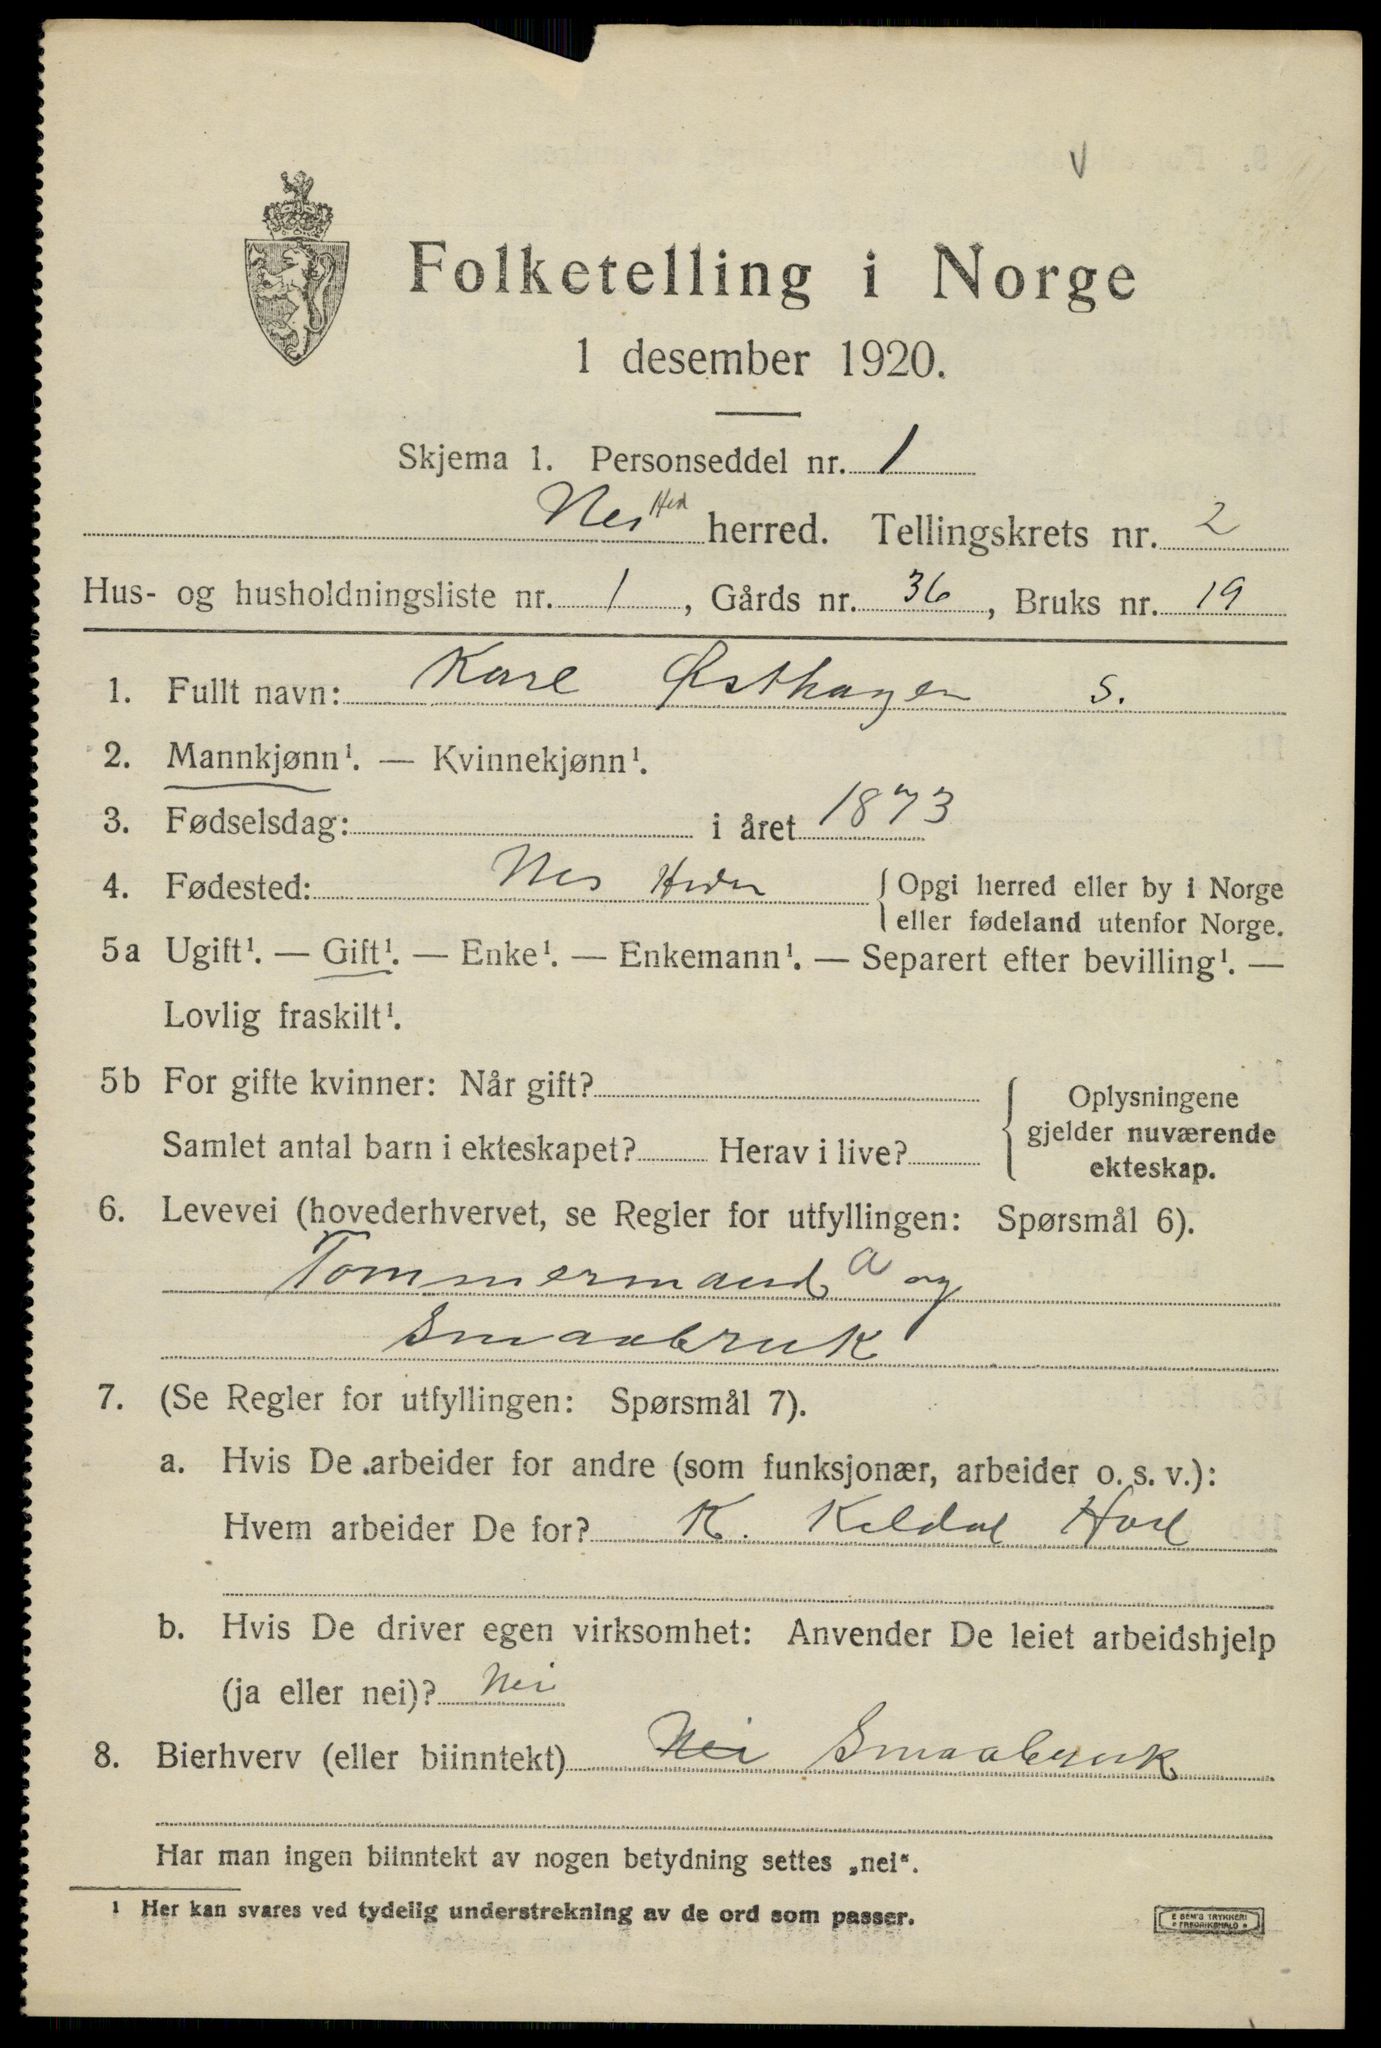 V
Folketelling i Norge
1 desember 1920.
Skjema 1. Personseddel nr. 1
Nes Hed herred. Tellingskrets nr. 2
Hus- og husholdningsliste nr. 1, Gårds nr. 36, Bruks nr. 19
1. Fullt navn: Karl Østhagen s.
2. Mannkjønn¹. — Kvinnekjønn¹.
3. Fødselsdag: i året 1873
4. Fødested: Nes Hedm { Opgi herred eller by i Norge
eller fødeland utenfor Norge.
5a Ugift¹. — Gift¹. — Enke¹. — Enkemann¹. — Separert efter bevilling¹. —
Lovlig fraskilt¹.
5b For gifte kvinner: Når gift?
Samlet antal barn i ekteskapet? Herav i live?
{ Oplysningene
gjelder nuværende
ekteskap.
6. Levevei (hovederhvervet, se Regler for utfyllingen: Spørsmål 6).
Tommermand a og
Smaabruk
7. (Se Regler for utfyllingen: Spørsmål 7).
a. Hvis De arbeider for andre (som funksjonær, arbeider o. s. v.):
Hvem arbeider De for? K. Keldal
b. Hvis De driver egen virksomhet: Anvender De leiet arbeidshjelp
(ja eller nei)? Nei
8. Bierhverv (eller biinntekt) Nei Smaabruk
Har man ingen biinntekt av nogen betydning settes „nei“.
¹ Her kan svares ved tydelig understrekning av de ord som passer.
E SEM'S TRYKKERI
FREDRIKSHALD